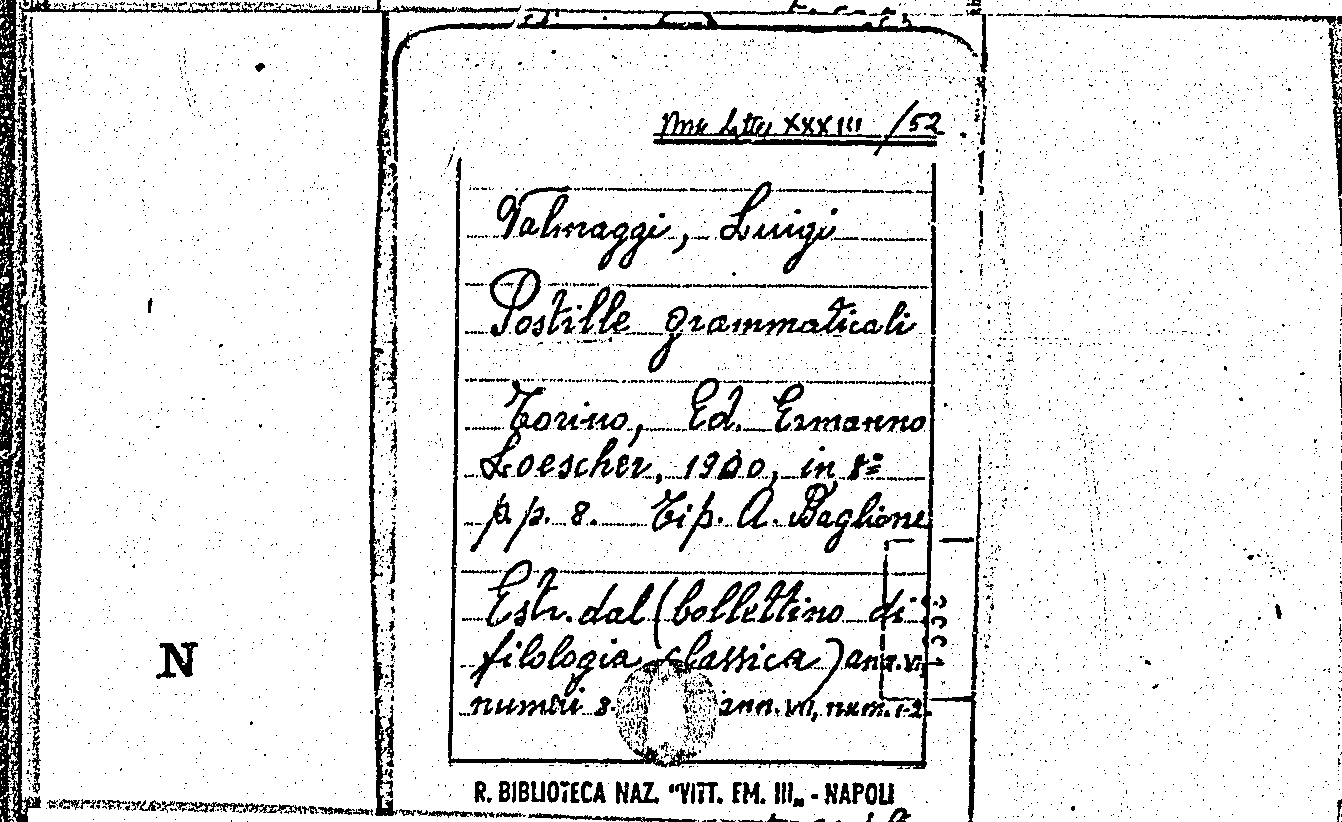 Misc. Lettere XXXIII /52
Valmaggi, Luigi
Postille grammaticali
Torino, Ed. Ermanno
Loescher, 1900, in 8º
pp. 8. Tip. A. Baglione
Estr. dal (bollettino di
filologia classica) ann. VI,
numeri 8. ann. VII, num. 1-2.
N
R. BIBLIOTECA NAZ. "VITT. EM. III„ - NAPOLI